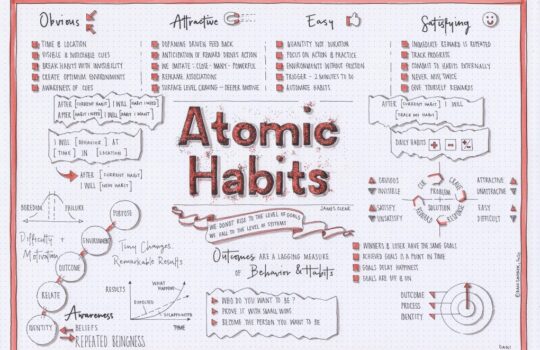 Obvious
TIME & LOCATION
VISIBLE & NOTICEABLE CUES
BREAK HABIT WITH INVISIBILITY
CREATE OPTIMUM ENVIRONMENTS
AWARENESS OF CUES
AFTER [CURRENT HABIT] I WILL [HABIT I NEED]
AFTER [HABIT I NEED] I WILL [HABIT I WANT]
I WILL [BEHAVIOR] AT
[TIME] IN [LOCATION]
AFTER [CURRENT HABIT]
I WILL [NEW HABIT]
Attractive
DOPAMINE DRIVEN FEED BACK
ANTICIPATION OF REWARD DRIVES ACTION
WE IMITATE: CLOSE - MANY - POWERFUL
REFRAME ASSOCIATIONS
SURFACE LEVEL CRAVING - DEEPER MOTIVE
Easy
QUANTITY NOT DURATION
FOCUS ON ACTION & PRACTICE
ENVIRONMENTS WITHOUT FRICTION
TRIGGER - 2 MINUTES TO DO
AUTOMATE HABITS
Satisfying
IMMEDIATE REWARD IS REPEATED
TRACK PROGRESS
COMMIT TO HABITS EXTERNALLY
NEVER MISS TWICE
GIVE YOURSELF REWARDS
AFTER [CURRENT HABIT] I WILL
TRACK MY HABIT
DAILY HABITS + - =
Atomic
Habits
JAMES CLEAR
WE DO NOT RISE TO THE LEVEL OF GOALS
WE FALL TO THE LEVEL OF SYSTEMS
Outcomes ARE A LAGGING MEASURE
OF Behavior & Habits
WHO DO YOU WANT TO BE?
PROVE IT WITH SMALL WINS
BECOME THE PERSON YOU WANT TO BE
BOREDOM
FAILURE
Difficulty &
Motivation
PURPOSE
ENVIRONMENT
OUTCOME
RELATE
IDENTITY
Tiny Changes,
Remarkable Results
Awareness
BELIEFS
REPEATED BEINGNESS
RESULTS
WHAT
HAPPENS
EXPECTED
DISAPPOINTED
TIME
OBVIOUS
INVISIBLE
SATISFY
UNSATISFY
CUE
CRAVE
PROBLEM
SOLUTION
REWARD
RESPONSE
ATTRACTIVE
UNATTRACTIVE
EASY
DIFFICULT
WINNERS & LOSER HAVE THE SAME GOALS
ACHIEVED GOALS IS A POINT IN TIME
GOALS DELAY HAPPINESS
OUTCOME
PROCESS
IDENTITY